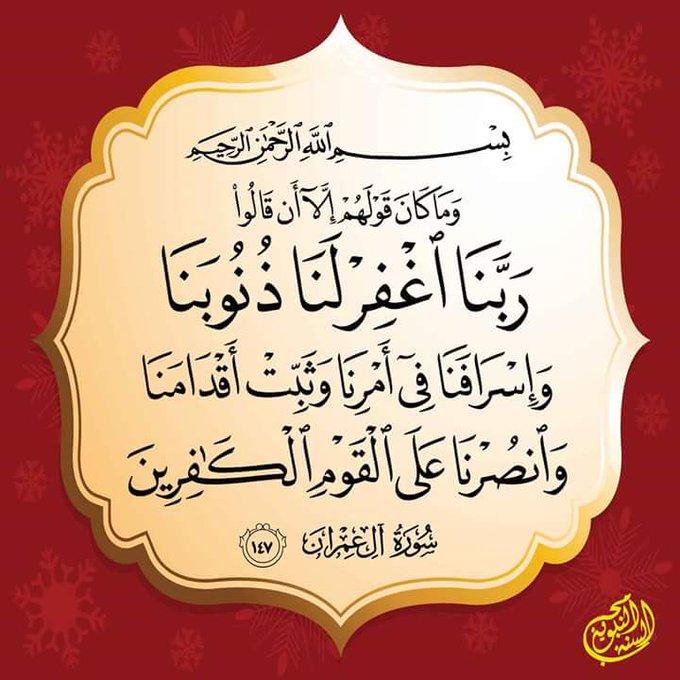 بِسْمِ ٱللَّهِ ٱلرَّحْمَٰنِ ٱلرَّحِيمِ
وَمَا كَانَ قَوْلَهُمْ إِلَّآ أَن قَالُوا۟
رَبَّنَا ٱغْفِرْ لَنَا ذُنُوبَنَا
وَإِسْرَافَنَا فِىٓ أَمْرِنَا وَثَبِّتْ أَقْدَامَنَا
وَٱنصُرْنَا عَلَى ٱلْقَوْمِ ٱلْكَٰفِرِينَ
سُورَةُ آلِ عِمْرَان ١٤٧
محبي السنه النبوية